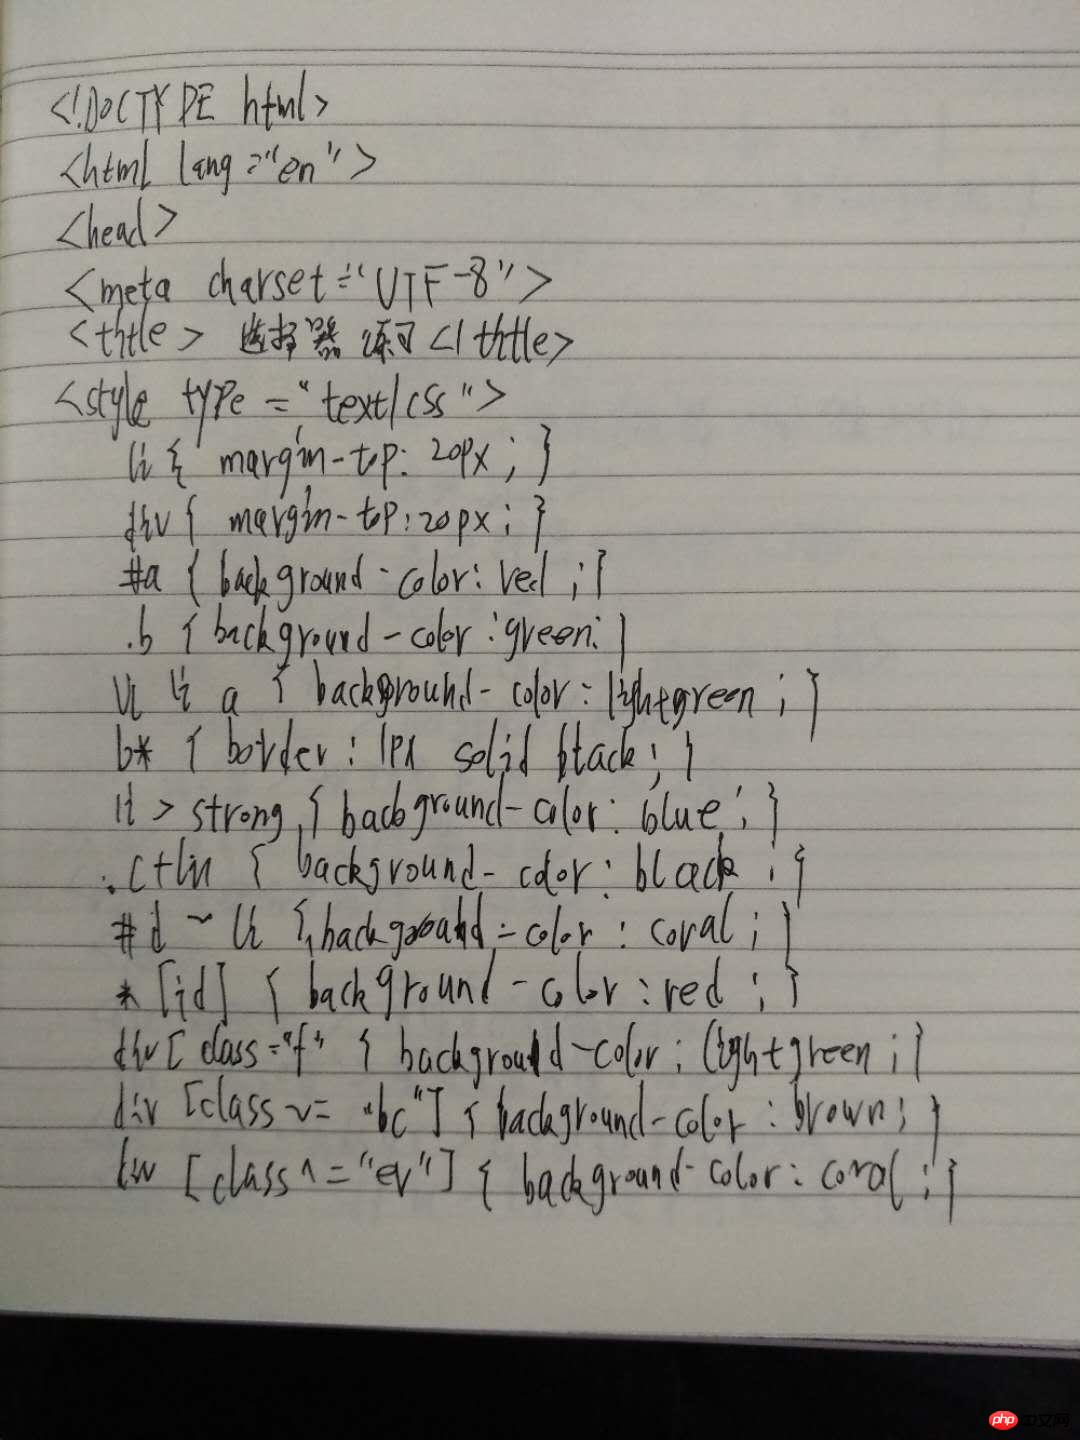 <!DOCTYPE html>
<html lang="en">
<head>
<meta charset="UTF-8">
<title> 选择器练习</title>
<style type="text/css">
li { margin-top: 20px; }
div { margin-top: 20px; }
#a { background-color: red; }
.b { background-color: green; }
ul li a { background-color: lightgreen; }
b* { border: 1px solid black; }
li > strong { background-color: blue; }
.c+li { background-color: black; }
#d ~ li { background-color: coral; }
* [id] { background-color: red; }
div [class="f" { background-color: lightgreen; }
div [class ~= "bc"] { background-color: brown; }
div [class ^= "ev"] { background-color: coral; }
php 中文网